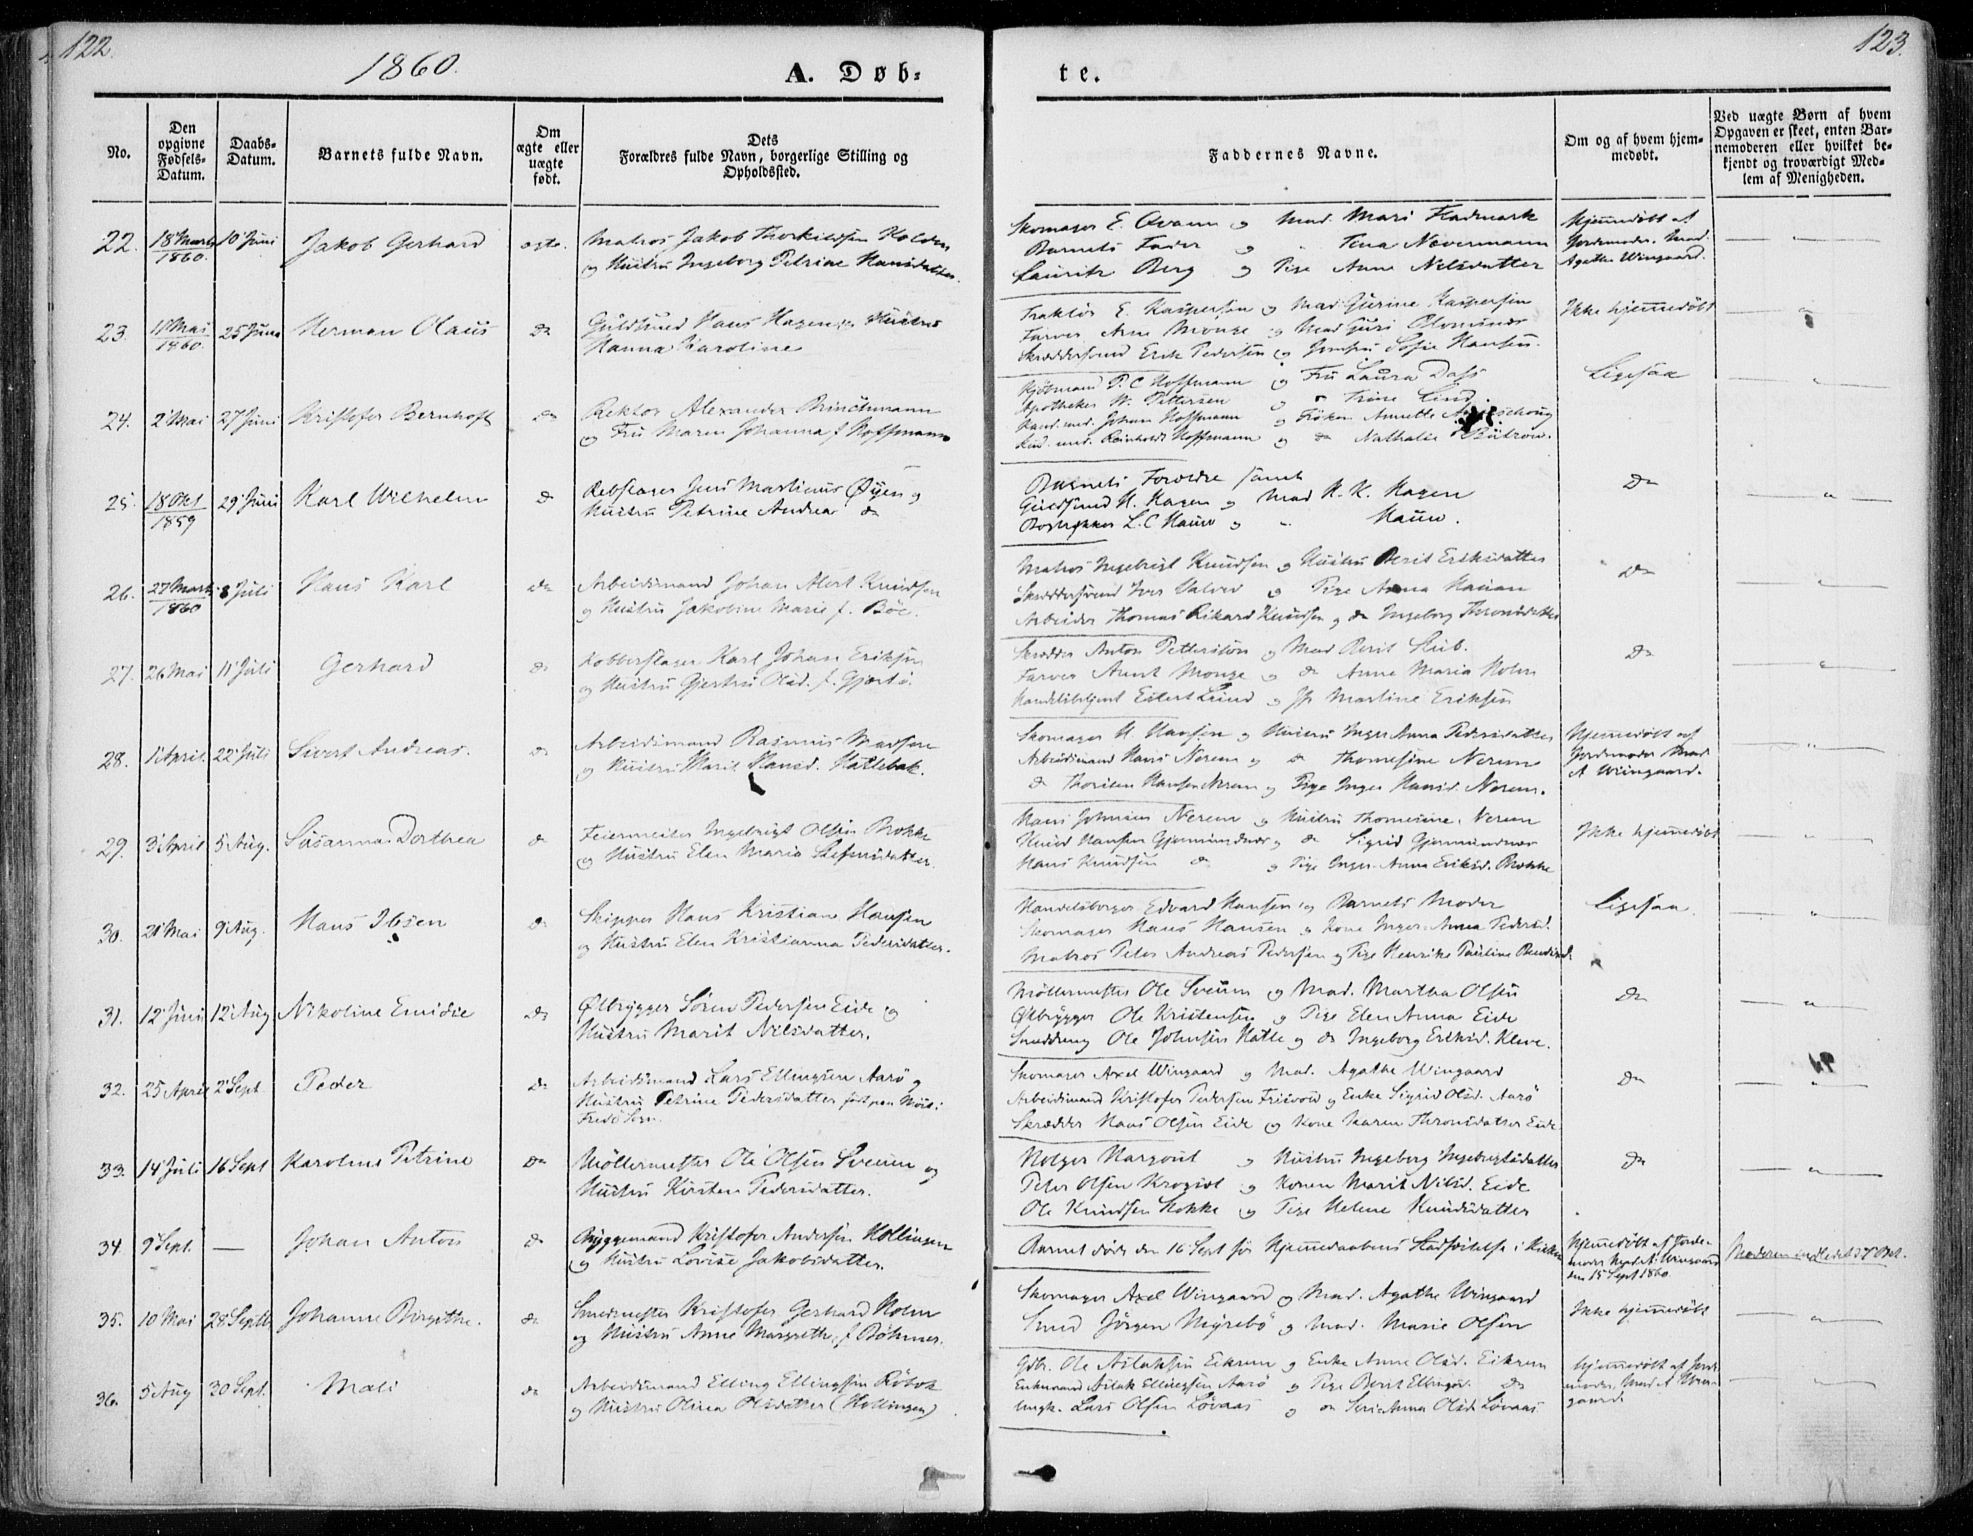 122.
1860.
A. Døb-
te.
123.
No.
Den opgivne Fødsels-Datum.
Daabs-Datum.
Barnets fulde Navn.
Om ægte eller uægte født.
Dets Forældres fulde Navn, borgerlige Stilling og Opholdssted.
Faddernes Navne.
Om og af hvem hjem-medøbt.
Ved uægte Børn af hvem Opgaven er skeet, enten Bar-nemoderen eller hvilket be-kjendt og troværdigt Med-lem af Menigheden.
22. 18 Marts 1860. 10 Juni Jakob Gerhard ægte.
Matros Jakob Thorkildsen Holden
og Hustru Ingeborg Petrine Hansdatter.
Skomager E. Qvam og Mad. Mari Hadmark
Barnets Fader og " Tena Nævermann
Lauritz Berg og Pige Anne Nilsdatter
Hjemmedøbt af
Jordemoder. Mad.
Agathe Wingaard.
23. 11 Mai 1860. 25 Juni Herman Olaus do
Guldsmed Hans Hagen og Hustru
Hanna Karoline
Traktør E. Kaspersen og Mad Gjerine Kaspersen
Farver Arne Monge og Mad Guri
Skræddersvend Erik Pedersen og Jomfru Sofie Hansen.
Ikke hjemmedøbt
24. 2 Mai 27 Juni Kristofer Bernhoft do
Rektor Alexander Brinchmann
og Fru Maren Johanna f. Hoffmann
Kjøbmand P. C Hoffmann og Fru Laura Dass
Apotheker W. Pettersen og " Trine Lind.
Kand. med. Johan Hoffmann og Frøken Annette
Kand. med. Reinholdt Hoffmann og do Nathalie Bülow.
Ligesaa
25. 18 Okt 1859 29 Juni Karl Wilhelm do
Rebslager Jens Martinus Øyen og
Hustru Petrine Andrea do
Barnets Forældre samt
Guldsmed H. Hagen og Mad H. K. Hagen
Bogtrykker L. C Hauw og " Hauw.
Do
26. 27 Marts 1860 8 Juli Hans Karl do
Arbeidsmand Johan Albert Knudsen
og Hustru Jakobine Marie f. Böe.
Matros Ingebrigt Knudsen og Hustru Berit Eriksdatter
Skræddersvend Iver og Pige Anna
Arbeider Thomas Rikard Knudsen og do Ingeborg Thronsdatter
Do
27. 26 Mai 11 Juli Gerhard do
Kobberslager Karl Johan Eriksen
og Hustru Gjertru Olsd. f.
Skrædder Anton Petterson og Mad Berit
Farver Arnt Monge og do Anne Maria Holm
Handelsbetjent Edvert Lund og Jfr Martine Eriksen
Do
28. 1 April. 22 Juli Sivert Andreas. do
Arbeidsmand Rasmus Madsen
og Hustru Marit Hansd. Hatlebak.
Skomager H. Hansen og Hustru Inger Anna Pedersdatter
Arbeidsmand Hans Nerem og do Thomesine Nerem
do Thorsten Hansen Nerem og Pige Inger Hansd. Nerem.
Hjemmedøbt af
Jordemoder Mad
A Wiingaard.
29. 3 April 5 Aug. Susanna Dorthea do
Feiermester Ingebrigt Olsen Brokke
og Hustru Elen Maria
Hans Johnsen Nerem og Hustru Thomesine Nerem
Knud Hansen Gjermundnes og do Sigrid Gjermundnes
Hans Knudsen do og Pige Inger Anna Eriksd. Brokke
Ikke hjemmedøbt
30. 21 Mai 9 Aug. Hans Ibsen do
Skipper Hans Kristian Hansen
og Hustru Elen Kristianna Pedersdatter.
Handelsborger Edvard Hansen og Barnets Moder
Skomager Hans Hansen og Kone Inger Anna Pedersd.
Matros Peter Andreas Pedersen og Pige Henrike Pauline
Ligesaa
31. 12 Juni 12 Aug Nikoline Emidie do
Ølbrygger Søren Pedersen Eide og
Hustru Marit Nilsdatter.
Møllermester Ole Sveum og Mad. Martha Olsen
Ølbrygger Ole Kristensen og Pige Elen Anna Eide
Ole Johnsen Hatle og do Ingeborg Eriksd. Kleve.
Do
32. 25 April 2 Sept Peder do
Arbeidsmand Lars Ellingsen Aarö og
Hustru Petrine Pedersdatter
Skomager Axel Wingaard og Mad. Agathe Wingaard
Arbeidsmand Kristofer Pedersen og Enke Sigrid Olsd. Aarö
Skrædder Hans Olsen Eide og Kone Karen Thronsdatter Eide
Do
33. 14 Juli 16 Sept Karoline Petrine do
Møllermester Ole Olsen Sveum og
Hustru Kirsten Pedersdatter.
Holger og Hustru Ingeborg Ingebrigtsdatter
Peter Olsen og Konen Marit Nilsd. Eide
Ole Knudsen Hokke og Pige Helene Knudsdatter
Do
34. 9 Sept. — Johan Anton do
Byggemand Kristofer Andersen Hollingen
og Hustru Lovise Jakobsdatter.
Barnet døde den 16 Sept før Hjemmedaabens Stadfæstelse i Kirken
Hjemmedøbt af Jorde-
moder Mad. A. Wingaard
den 15 Sept 1860.
Moderen indledet Okt.
35. 10 Mai 28 Septb Johanne Birgithe. do
Smedmester Kristofer Gerhard Holm
og Hustru Anne Margrethe f. Böhmer.
Skomager Axel Wingaard og Mad. Agathe Wingaard
Smed Jörgen Myrebö og Mad. Marie Olsen
Ikke hjemmedøbt
36. 5 Aug 30 Sept. Mali do
Arbeidsmand Elling Ellingsen Röbek
og Hustru Olina Olsdatter (Hollingen)
Gdbr. Ole Aslaksen Eikrem og Enke Anne Olsd. Eikrem
Enkemand Aslak Ellingsen Aarö og Pige Berit Ellingsd. do
Ungk. Lars Olsen Lövaas og do Seri Anna Olsd. Lövaas
Hjemmedøbt af Jorde-
moder Mad A Win-
gaard